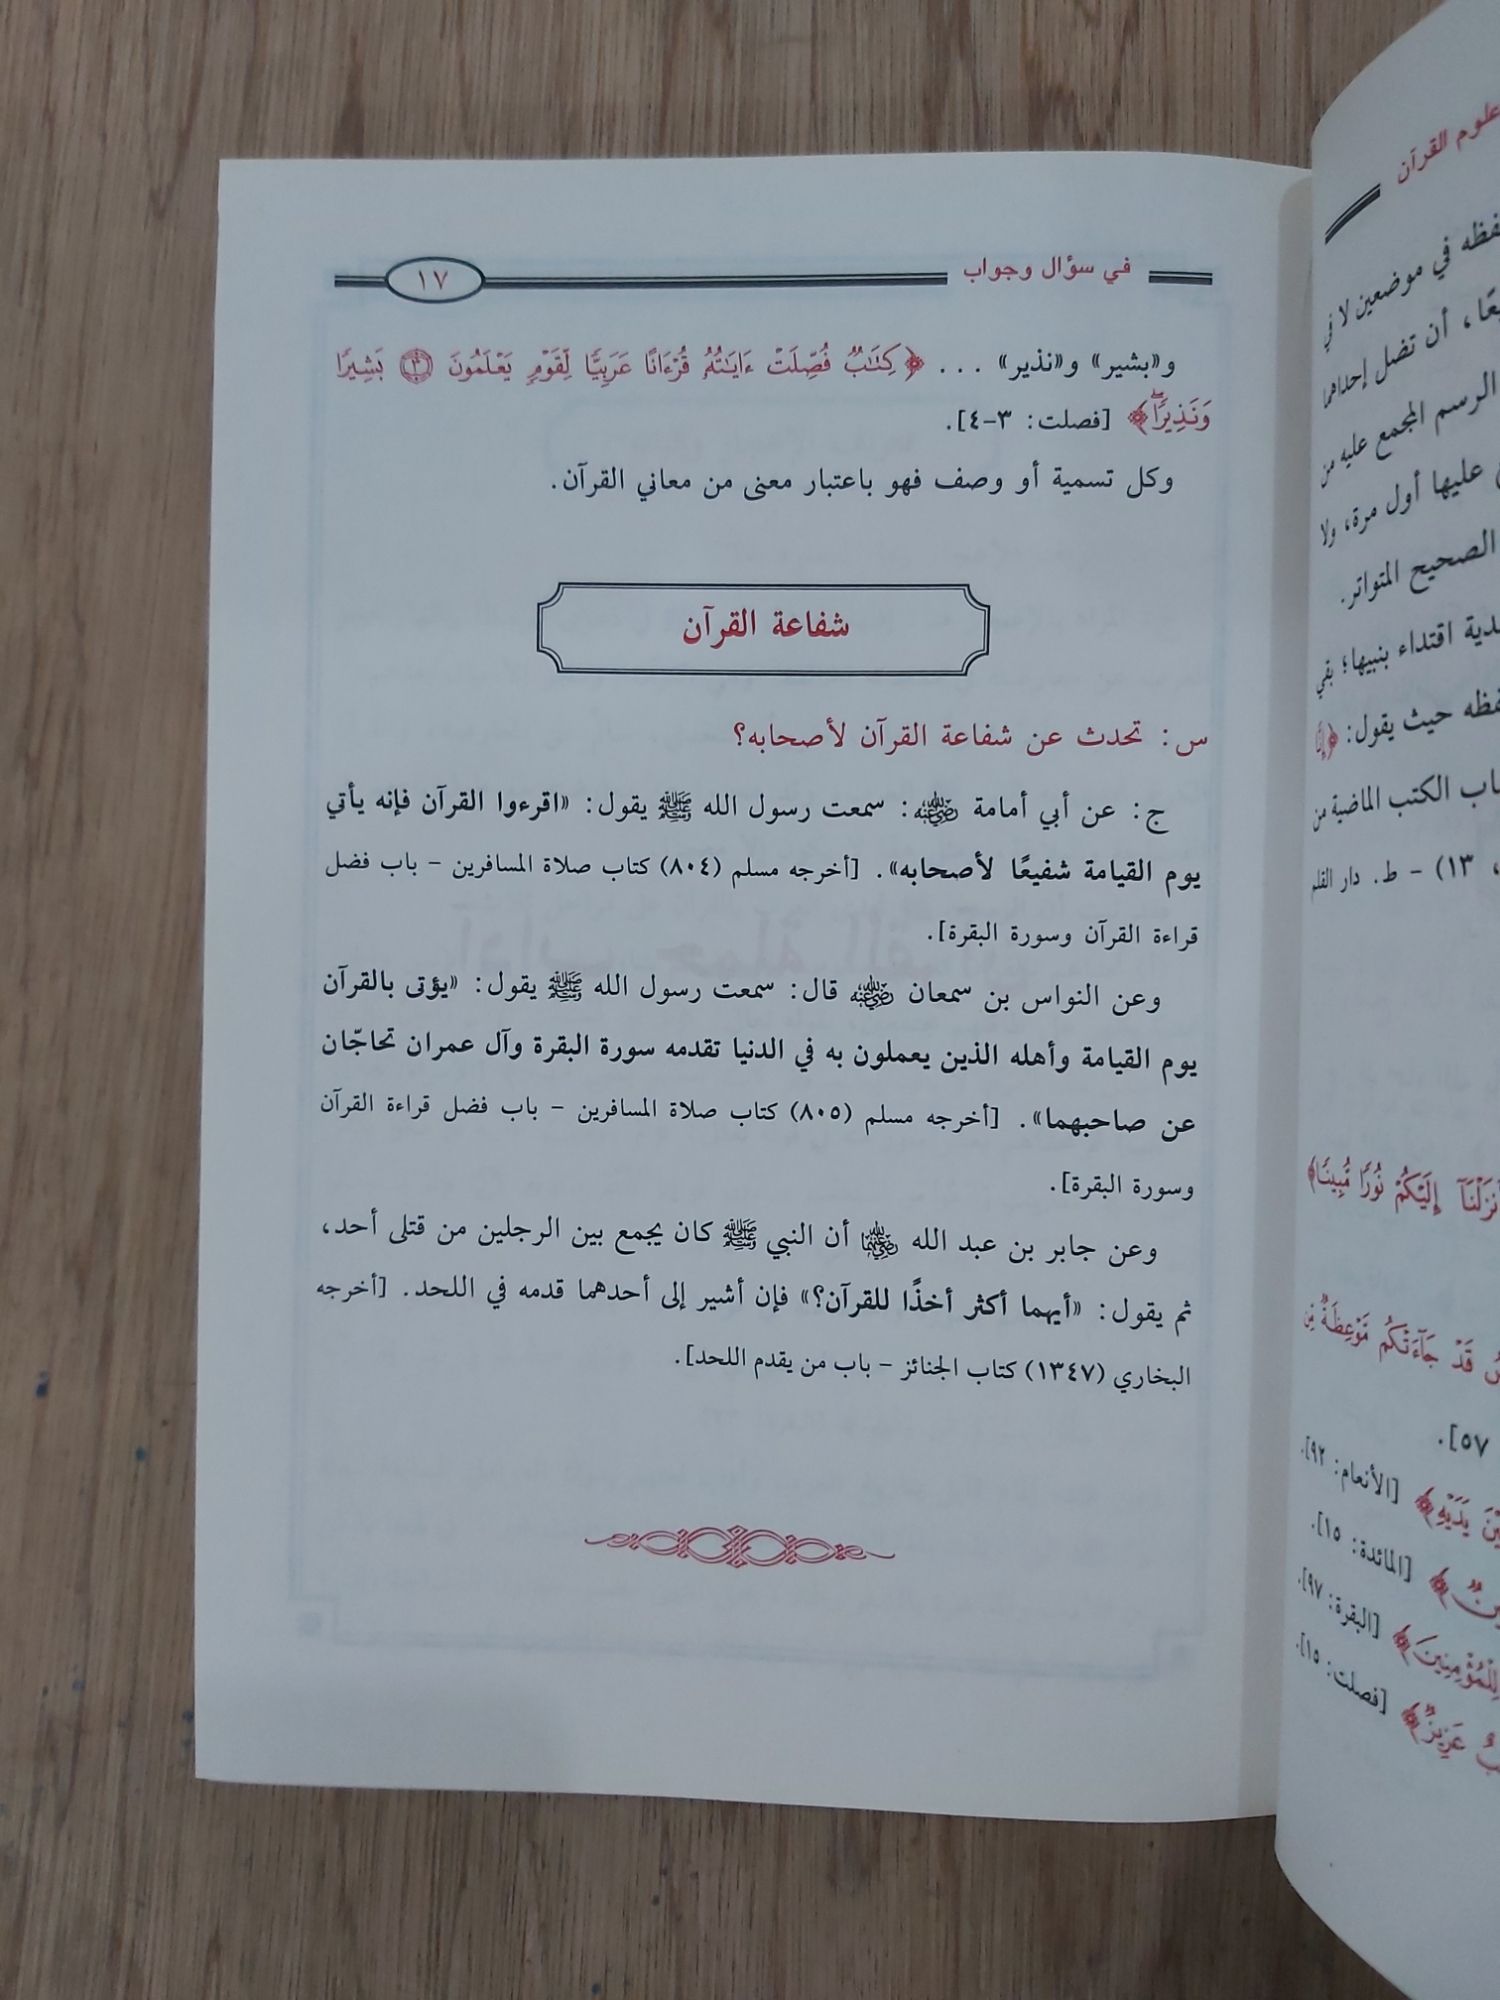 في سؤال وجواب
١٧
و«بشير» و«نذير» ... ﴿كِتَٰبٌ فُصِّلَتْ ءَايَٰتُهُۥ قُرْءَانًا عَرَبِيًّا لِّقَوْمٍ يَعْلَمُونَ ٣ بَشِيرًا
وَنَذِيرًا﴾ [فصلت: ٣-٤].
وكل تسمية أو وصف فهو باعتبار معنى من معاني القرآن.
شفاعة القرآن
س: تحدث عن شفاعة القرآن لأصحابه؟
ج: عن أبي أمامة رضي الله عنه: سمعت رسول الله ﷺ يقول: «اقرءوا القرآن فإنه يأتي
يوم القيامة شفيعًا لأصحابه». [أخرجه مسلم (٨٠٤) كتاب صلاة المسافرين - باب فضل
قراءة القرآن وسورة البقرة].
وعن النواس بن سمعان رضي الله عنه قال: سمعت رسول الله ﷺ يقول: «يؤتى بالقرآن
يوم القيامة وأهله الذين يعملون به في الدنيا تقدمه سورة البقرة وآل عمران تحاجّان
عن صاحبهما». [أخرجه مسلم (٨٠٥) كتاب صلاة المسافرين - باب فضل قراءة القرآن
وسورة البقرة].
وعن جابر بن عبد الله رضي الله عنهما أن النبي ﷺ كان يجمع بين الرجلين من قتلى أحد،
ثم يقول: «أيهما أكثر أخذًا للقرآن؟» فإن أشير إلى أحدهما قدمه في اللحد. [أخرجه
البخاري (١٣٤٧) كتاب الجنائز - باب من يقدم اللحد].
علوم القرآن
في موضعين لا في
أن تضل إحداهما
الرسم المجمع عليه من
عليها أول مرة، ولا
الصحيح المتواتر.
اقتداء بنبيها؛ بقي
حيث يقول: ﴿إِنَّا
الكتب الماضية من
١٣) - ط. دار القلم
إِلَيْكُمْ نُورًا مُّبِينًا﴾
قَدْ جَآءَتْكُم مَّوْعِظَةٌ مِّن
٥٧].
يَدَيْهِ﴾ [الأنعام: ٩٢].
[المائدة: ١٥].
لِلْمُؤْمِنِينَ﴾ [البقرة: ٩٧].
عَزِيزٌ﴾ [فصلت: ١٥].